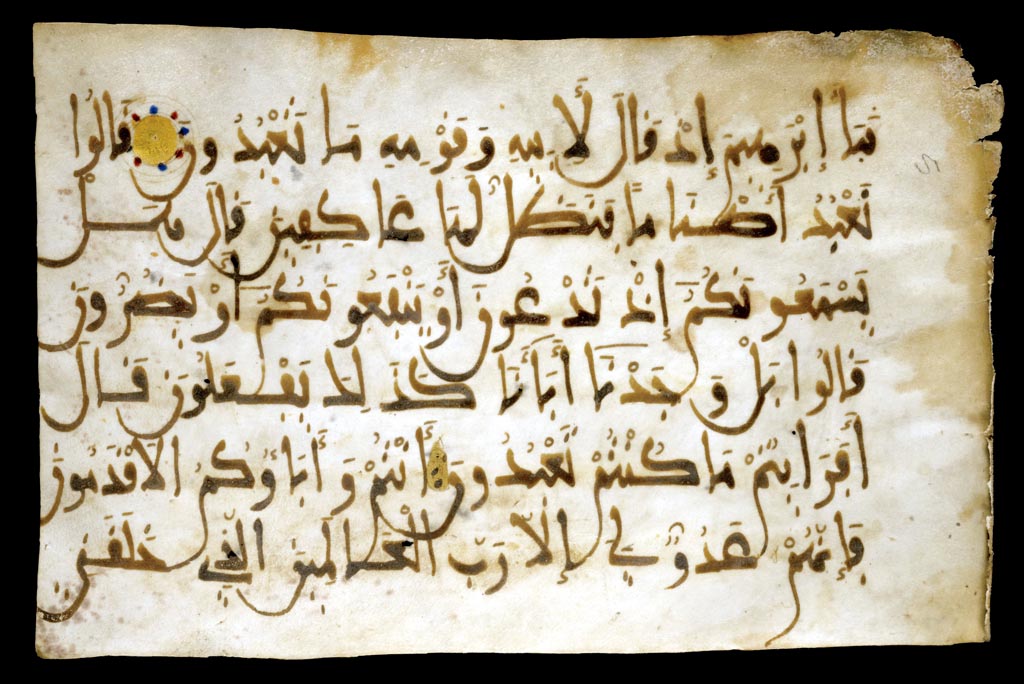 نبأ إبرهيم إذ قال لأبيه وقومه ما تعبدون قالوا
نعبد أصناما فنظل لها عاكفين قال هل
يسمعونكم إذ تدعون أو ينفعونكم أو يضرون
قالوا بل وجدنا أباءنا كذلك يفعلون قال
أفرايتم ما كنتم تعبدون أنتم وأباؤكم الأقدمون
فإنهم عدو لي إلا رب العالمين الذي خلقني